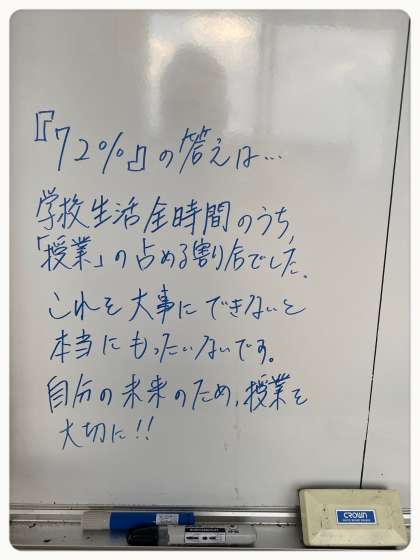 『72%』の答えは…
学校生活全時間のうち,
「授業」の占める割合でした.
これを大事にできないと
本当にもったいないです。
自分の未来のため,授業を
大切に!!
CROWN